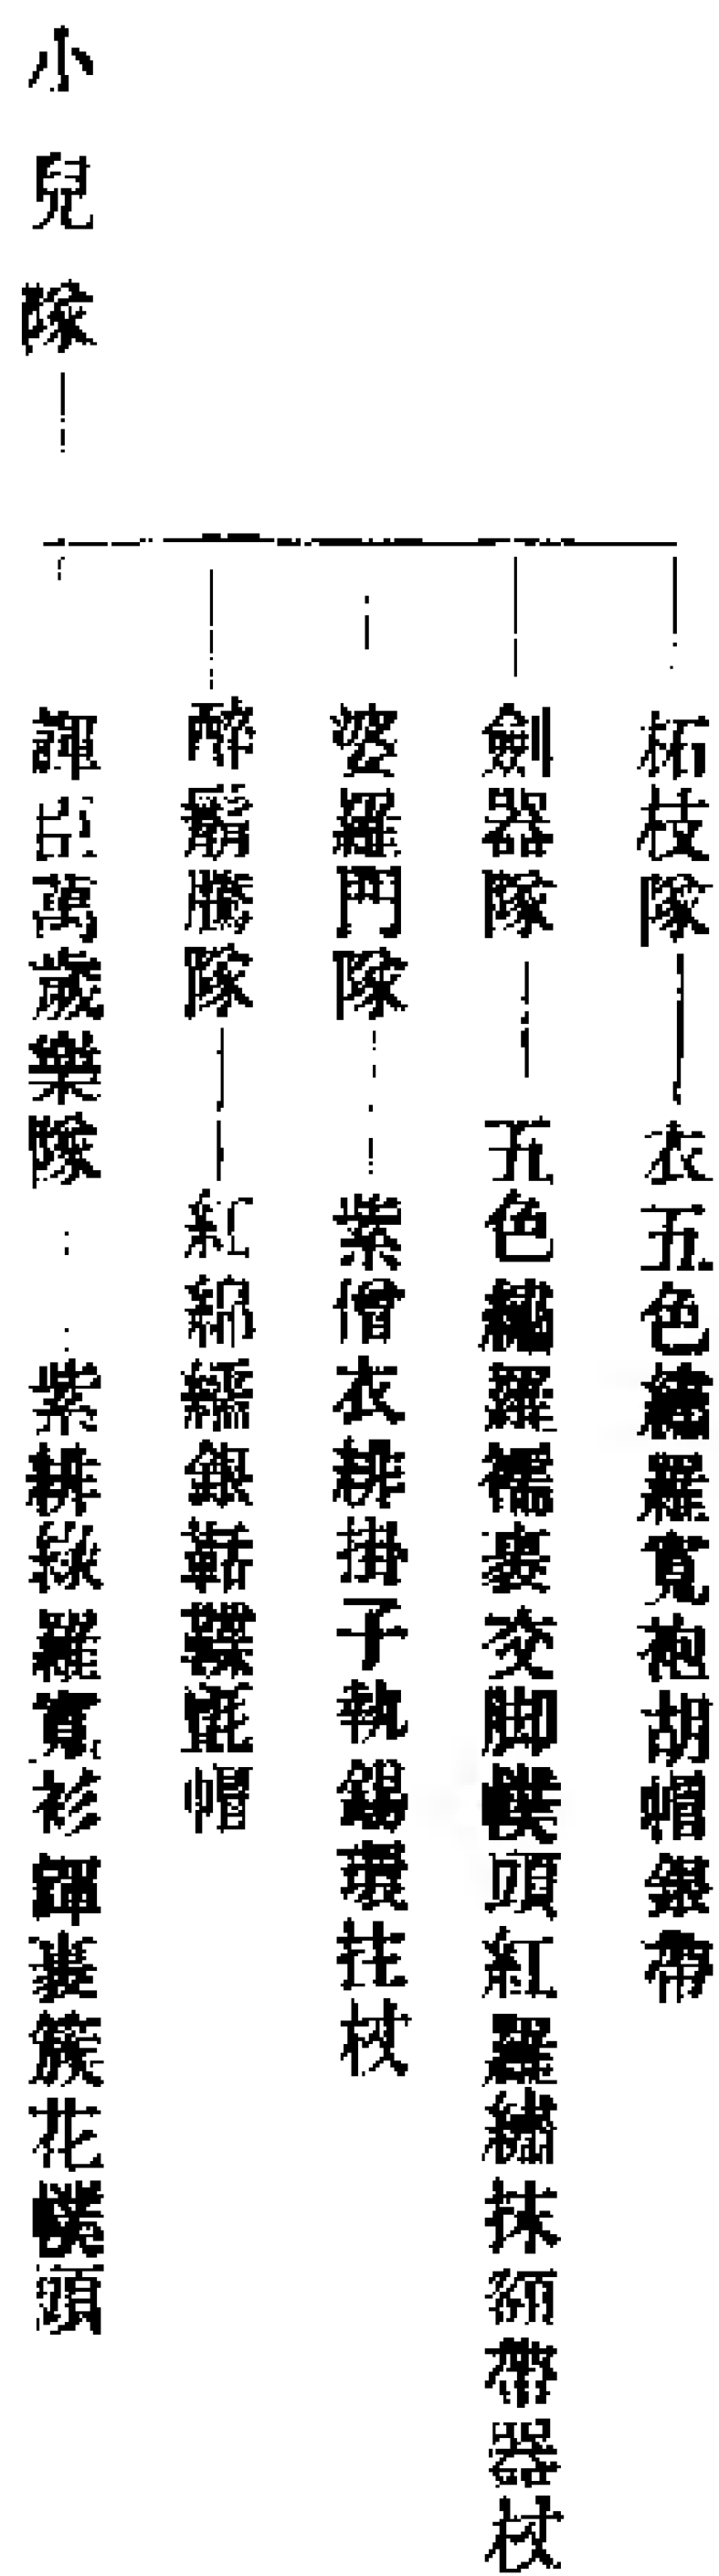 小兒隊
柘枝隊 衣五色繡羅寬袍胡帽銀帶
劍器隊 五色繡羅襦裹交脚幞頭紅羅繡抹額帶器杖
婆羅門隊 紫僧衣緋掛子執錫環拄杖
醉鬍騰隊 紅錦襦銀䩞鞢氈帽
諢臣萬歲樂隊 紫緋綠羅寬衫諢裹簇花幞頭